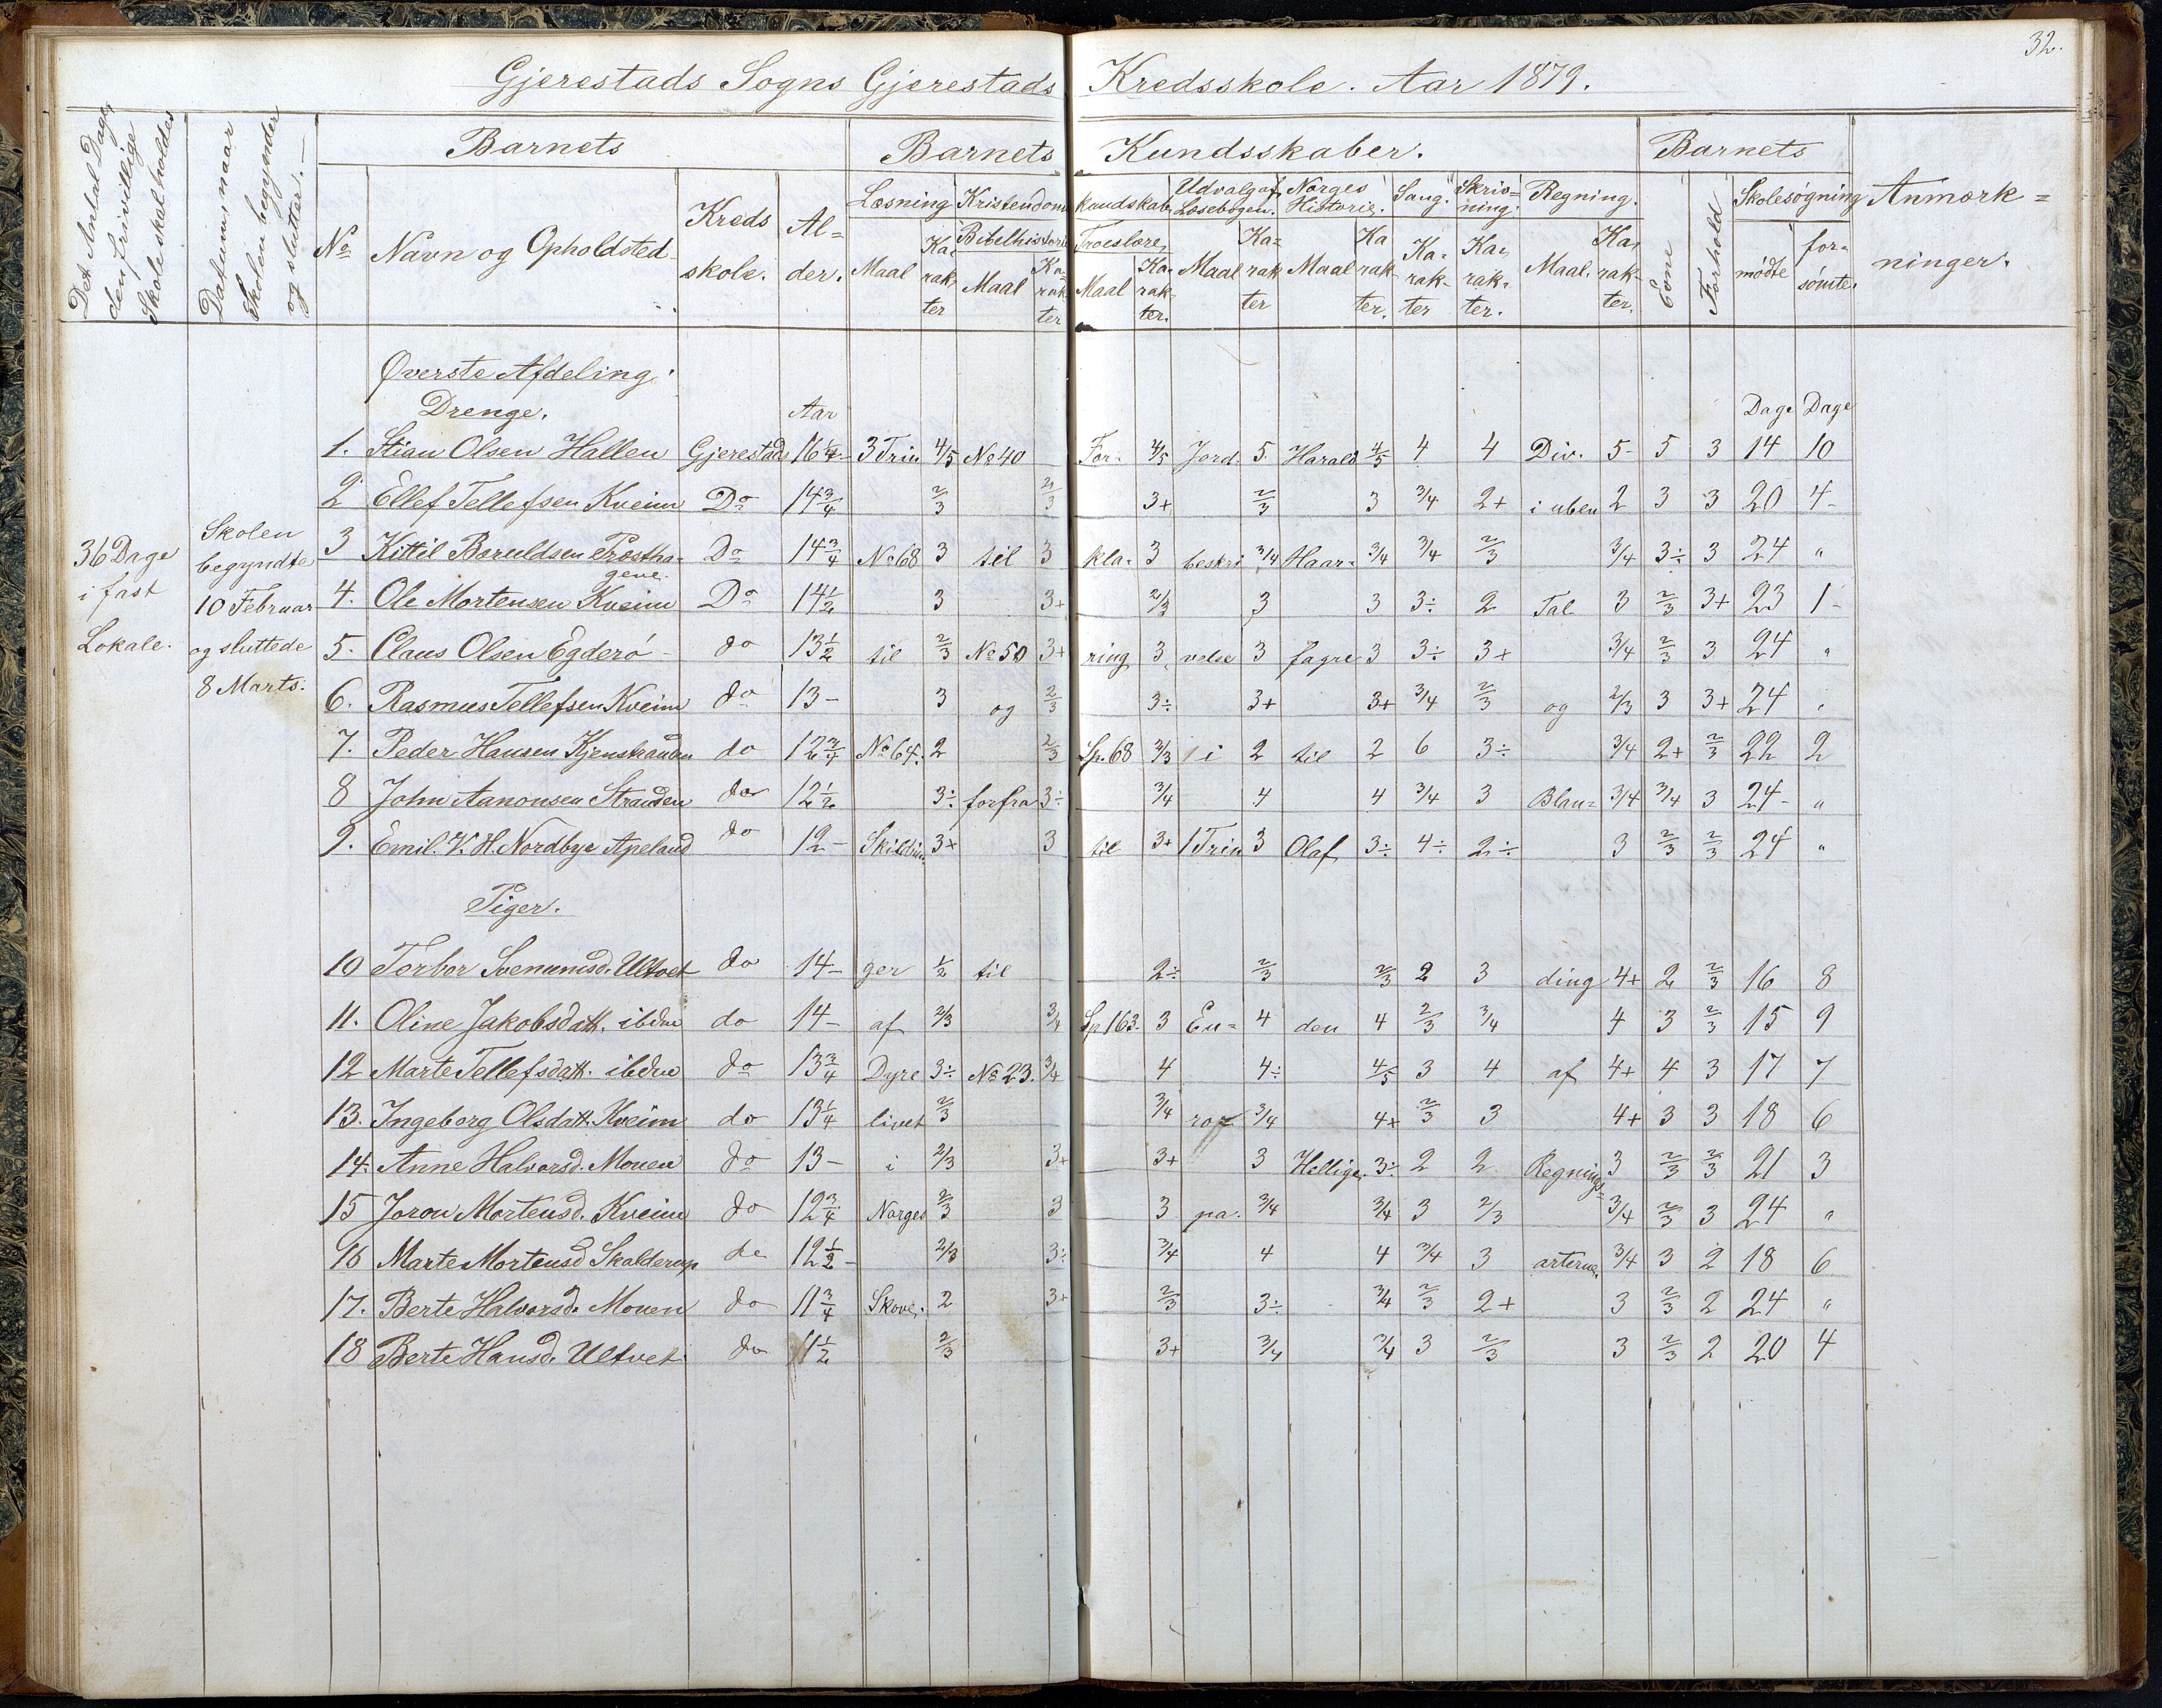 32.
Gjerestads Sogns Gjerestads Kredsskole. Aar 1879.
Det Antal Dage den frivillige Skole skal holdes
Datum, naar Skolen begynder og slutter.
Barnets Barnets Kundsskaber. Barnets
No Navn og Opholdsted. Kreds skole. Al= der.
Læsning Kristendoms kundskab Udvalg af Læsebogen. Norges Historie. Sang. Skriv= ning. Regning. Evne Forhold Skolesøgning Anmærk= ninger.
Bibelhistorie Troeslære
Maal Ka= rak ter Maal Ka= rak ter Maal Ka= rak ter. Maal Ka= rak ter Maal Ka rak ter. Ka= rak- ter Ka= rak- ter. Maal. Ka= rak- ter. mødte for= sømte.
36 Dage i fast Lokale.
Skolen begyndte 10 Februar og sluttede 8 Marts.
Øverste Afdeling.
Drenge. Aar Dage Dage
1. Stian Olsen Hallen Gjerestads 16 1/4 3 Trin 4/5 No 40 For- 4/5 Jord- 5 Harald 4/5 4 4 Div. 5- 5 3 14 10
2 Ellef Tellefsen Kveim Do 14 3/4 2/3 2/3 3+ 2/3 3 3/4 2+ i uben 2 3 3 20 4-
3 Kittil Baruldsen Præstha= gene. Do 14 3/4 No 68 3 til 3 kla- 3 beskri 3/4 Haar- 3/4 3/4 2/3 3/4 3÷ 3 24 "
4. Ole Mortensen Kveim Do 14 1/2 3 3+ 2/3 3 3 3÷ 2 Tal 3 2/3 3+ 23 1-
5. Claus Olsen Egderø do 13 1/2 til 2/3 No 50 3+ ring 3 velse 3 fagre 3 3÷ 3+ 3/4 2/3 3 24 "
6. Rasmus Tellefsen Kveim do 13- 3 og 2/3 3÷ 3+ 3+ 3/4 2/3 og 2/3 3 3+ 24 "
7. Peder Hansen do 12 3/4 No 64. 2 2/3 Sp. 68 2/3 i 2 til 2 6 3÷ 3/4 2+ 2/3 22 2
8 John Aanonsen Stranden do 12 1/2 3÷ forfra 3÷ 3/4 4 4 3/4 3 Blan= 3/4 3/4 3 24- "
9. Emil. K. H. Nordbye Apeland do 12- Skildrin 3+ 3 til 3+ 1 Trin 3 Olaf 3÷ 4÷ 2÷ 3 2/3 2/3 24 "
Piger.
10 Torbor Svenumsd. Ultvet do 14- ger 1/2 til 2÷ 2/3 2/3 2 3 ding 4+ 2 2/3 16 8
11. Oline Jakobsdatt. ibdm do 14- af 2/3 3/4 Sp. 163. 3 Eu= 4 den 4 2/3 3/4 4 3 2/3 15 9
12 Marte Tellefsdatt. ibdm do 13 3/4 Dyre 3÷ No 23. 3/4 4 4÷ 4/5 3 4 af 4+ 4 3 17 7
13. Ingeborg Olsdatt. Kveim do 13 1/4 livet 2/3 3/4 ro 3/4 4+ 2/3 3 4+ 3 3 18 6
14. Anne Halvorsd. Mouen do 13- i 2/3 3+ 3+ 3 Hellige. 3÷ 2 2 Regnings= 3 2/3 2/3 21 3
15 Joron Mortensd. Kveim do 12 3/4 Norges 2/3 3 3 pa. 3/4 3/4 3 2/3 3/4 2/3 3 24 "
16 Marte Mortensd Skalderup do 12 1/2- 2/3 3÷ 3/4 4 4 3/4 3 arterne. 3/4 3 2 18 6
17. Berte Halvorsd. Mouen do 11 3/4 Skove. 2 3+ 2/3 3÷ 3/4 2/3 2+ 3 2/3 2 24 "
18 Berte Hansd. Ultvet do 11 1/2 2/3 3+ 3/4 3/4 3 2/3 3 2/3 2 20 4